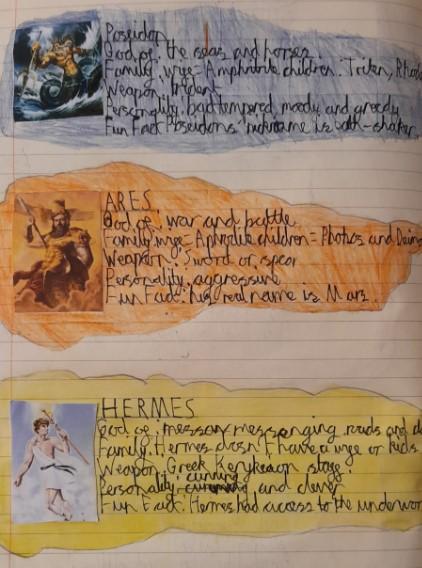 Poseidon
God of: the seas and horses
Family: wife = Amphitrite children: Triton, Rhode
Weapon: trident
Personality: bad tempered moody and greedy
Fun Fact: Poseidons nickname is earth-shaker
ARES
God of: war and battle
Family: wife = Aphrodite children = Phobos and Deim
Weapon: Sword or spear
Personality: aggressive
Fun Fact: his real name is Mars
HERMES
God of: messenging roads and
Family: Hermes dosn't have a wife or kids
Weapon: Greek Kerykeion
Personality: cunning and clever
Fun Fact: Hermes had access to the underwor